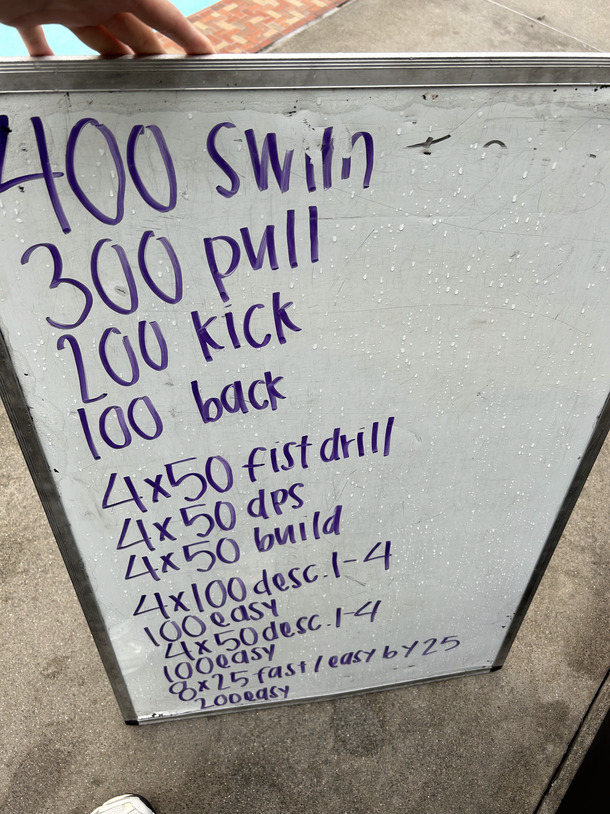 400 swim
300 pull
200 kick
100 back
4x50 fist drill
4x50 dps
4x50 build
4x100 desc. 1-4
100 easy
4x50 desc. 1-4
100 easy
8x25 fast/easy by 25
200 easy